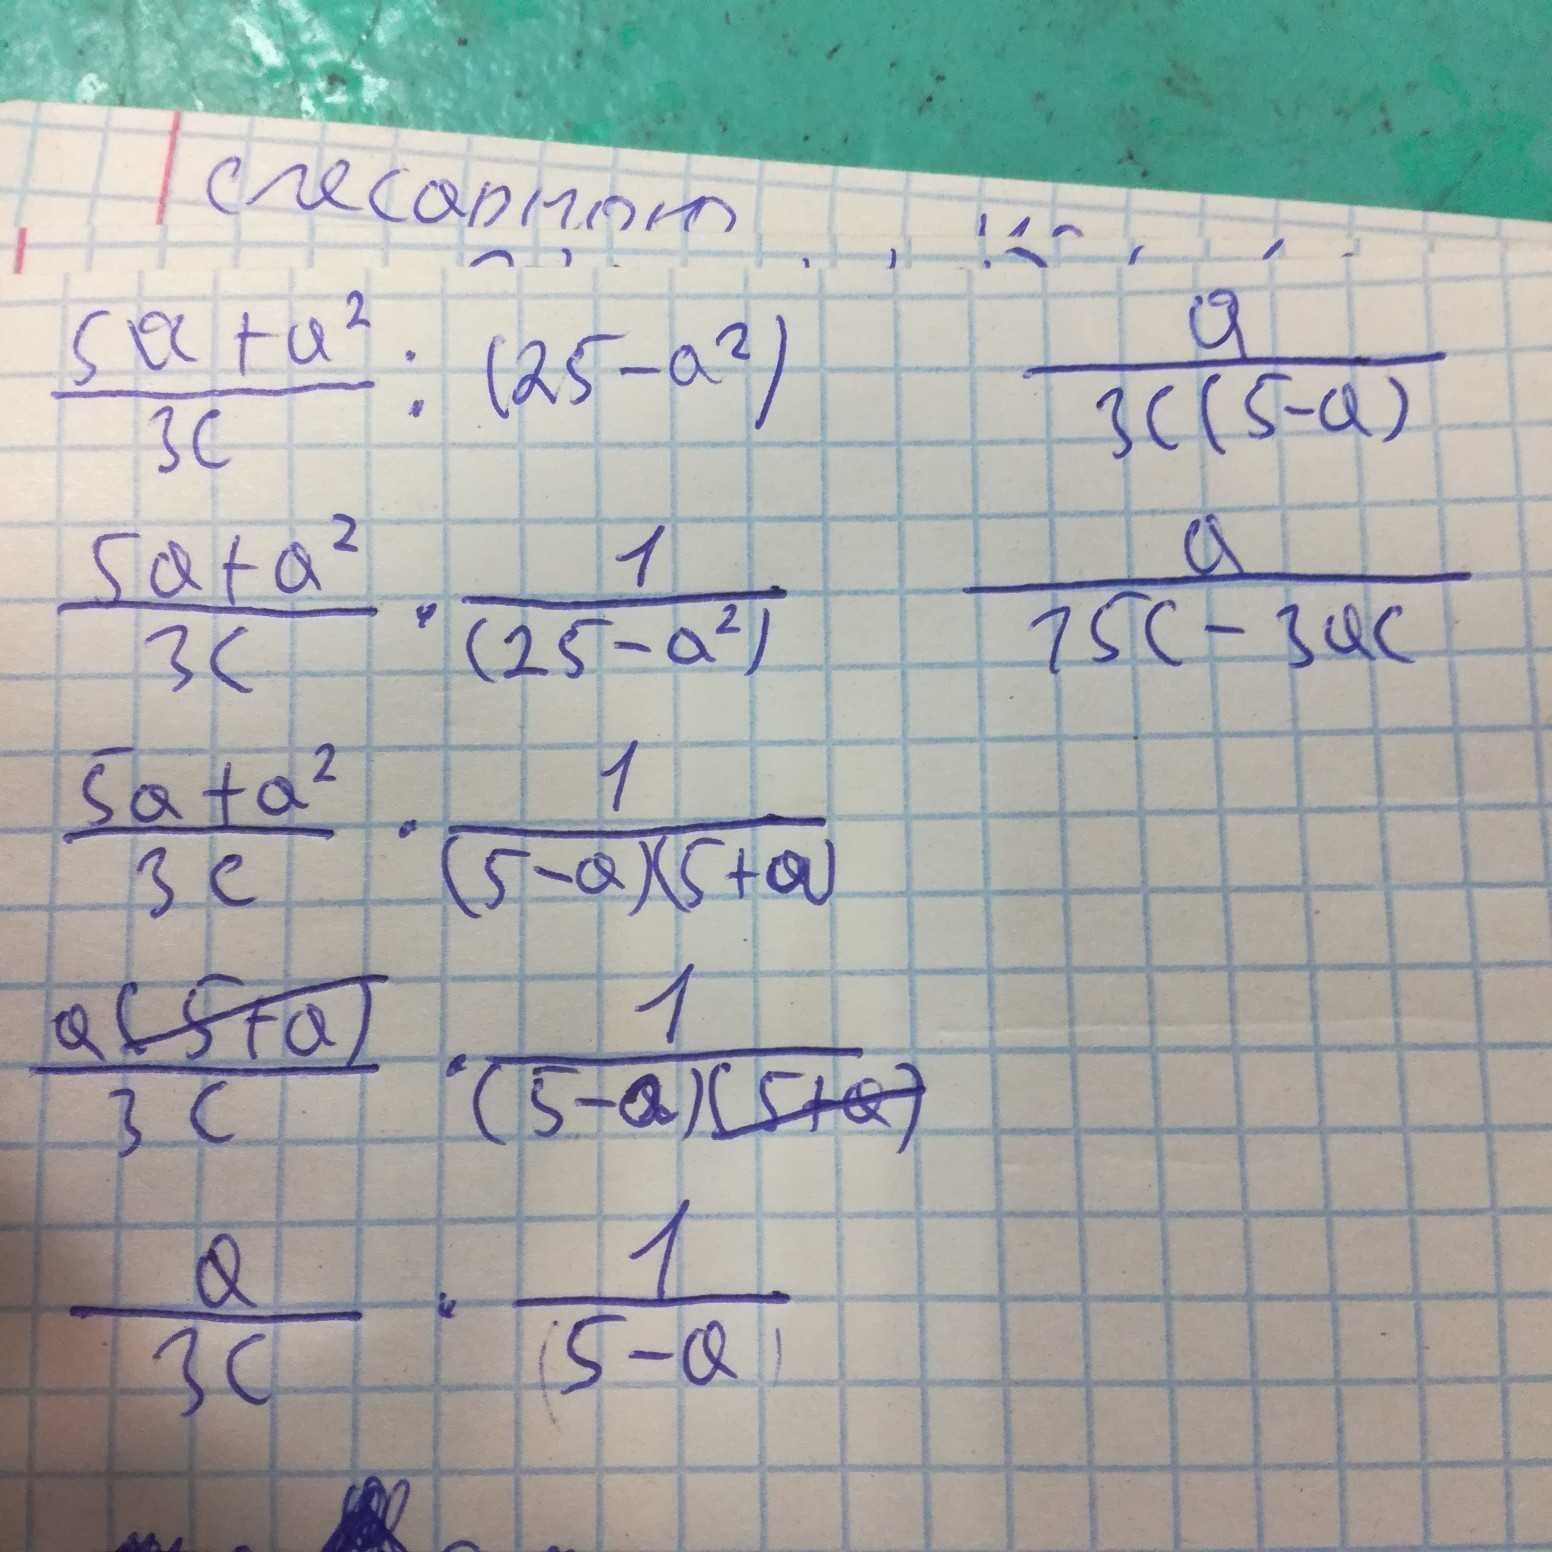 (5a+a²)/(3c) : (25-a²)
(5a+a²)/(3c) · 1/(25-a²)
(5a+a²)/(3c) · 1/((5-a)(5+a))
a(5+a)/(3c) · 1/((5-a)(5+a))
a/(3c) · 1/(5-a)
a/(3c(5-a))
a/(15c-3ac)